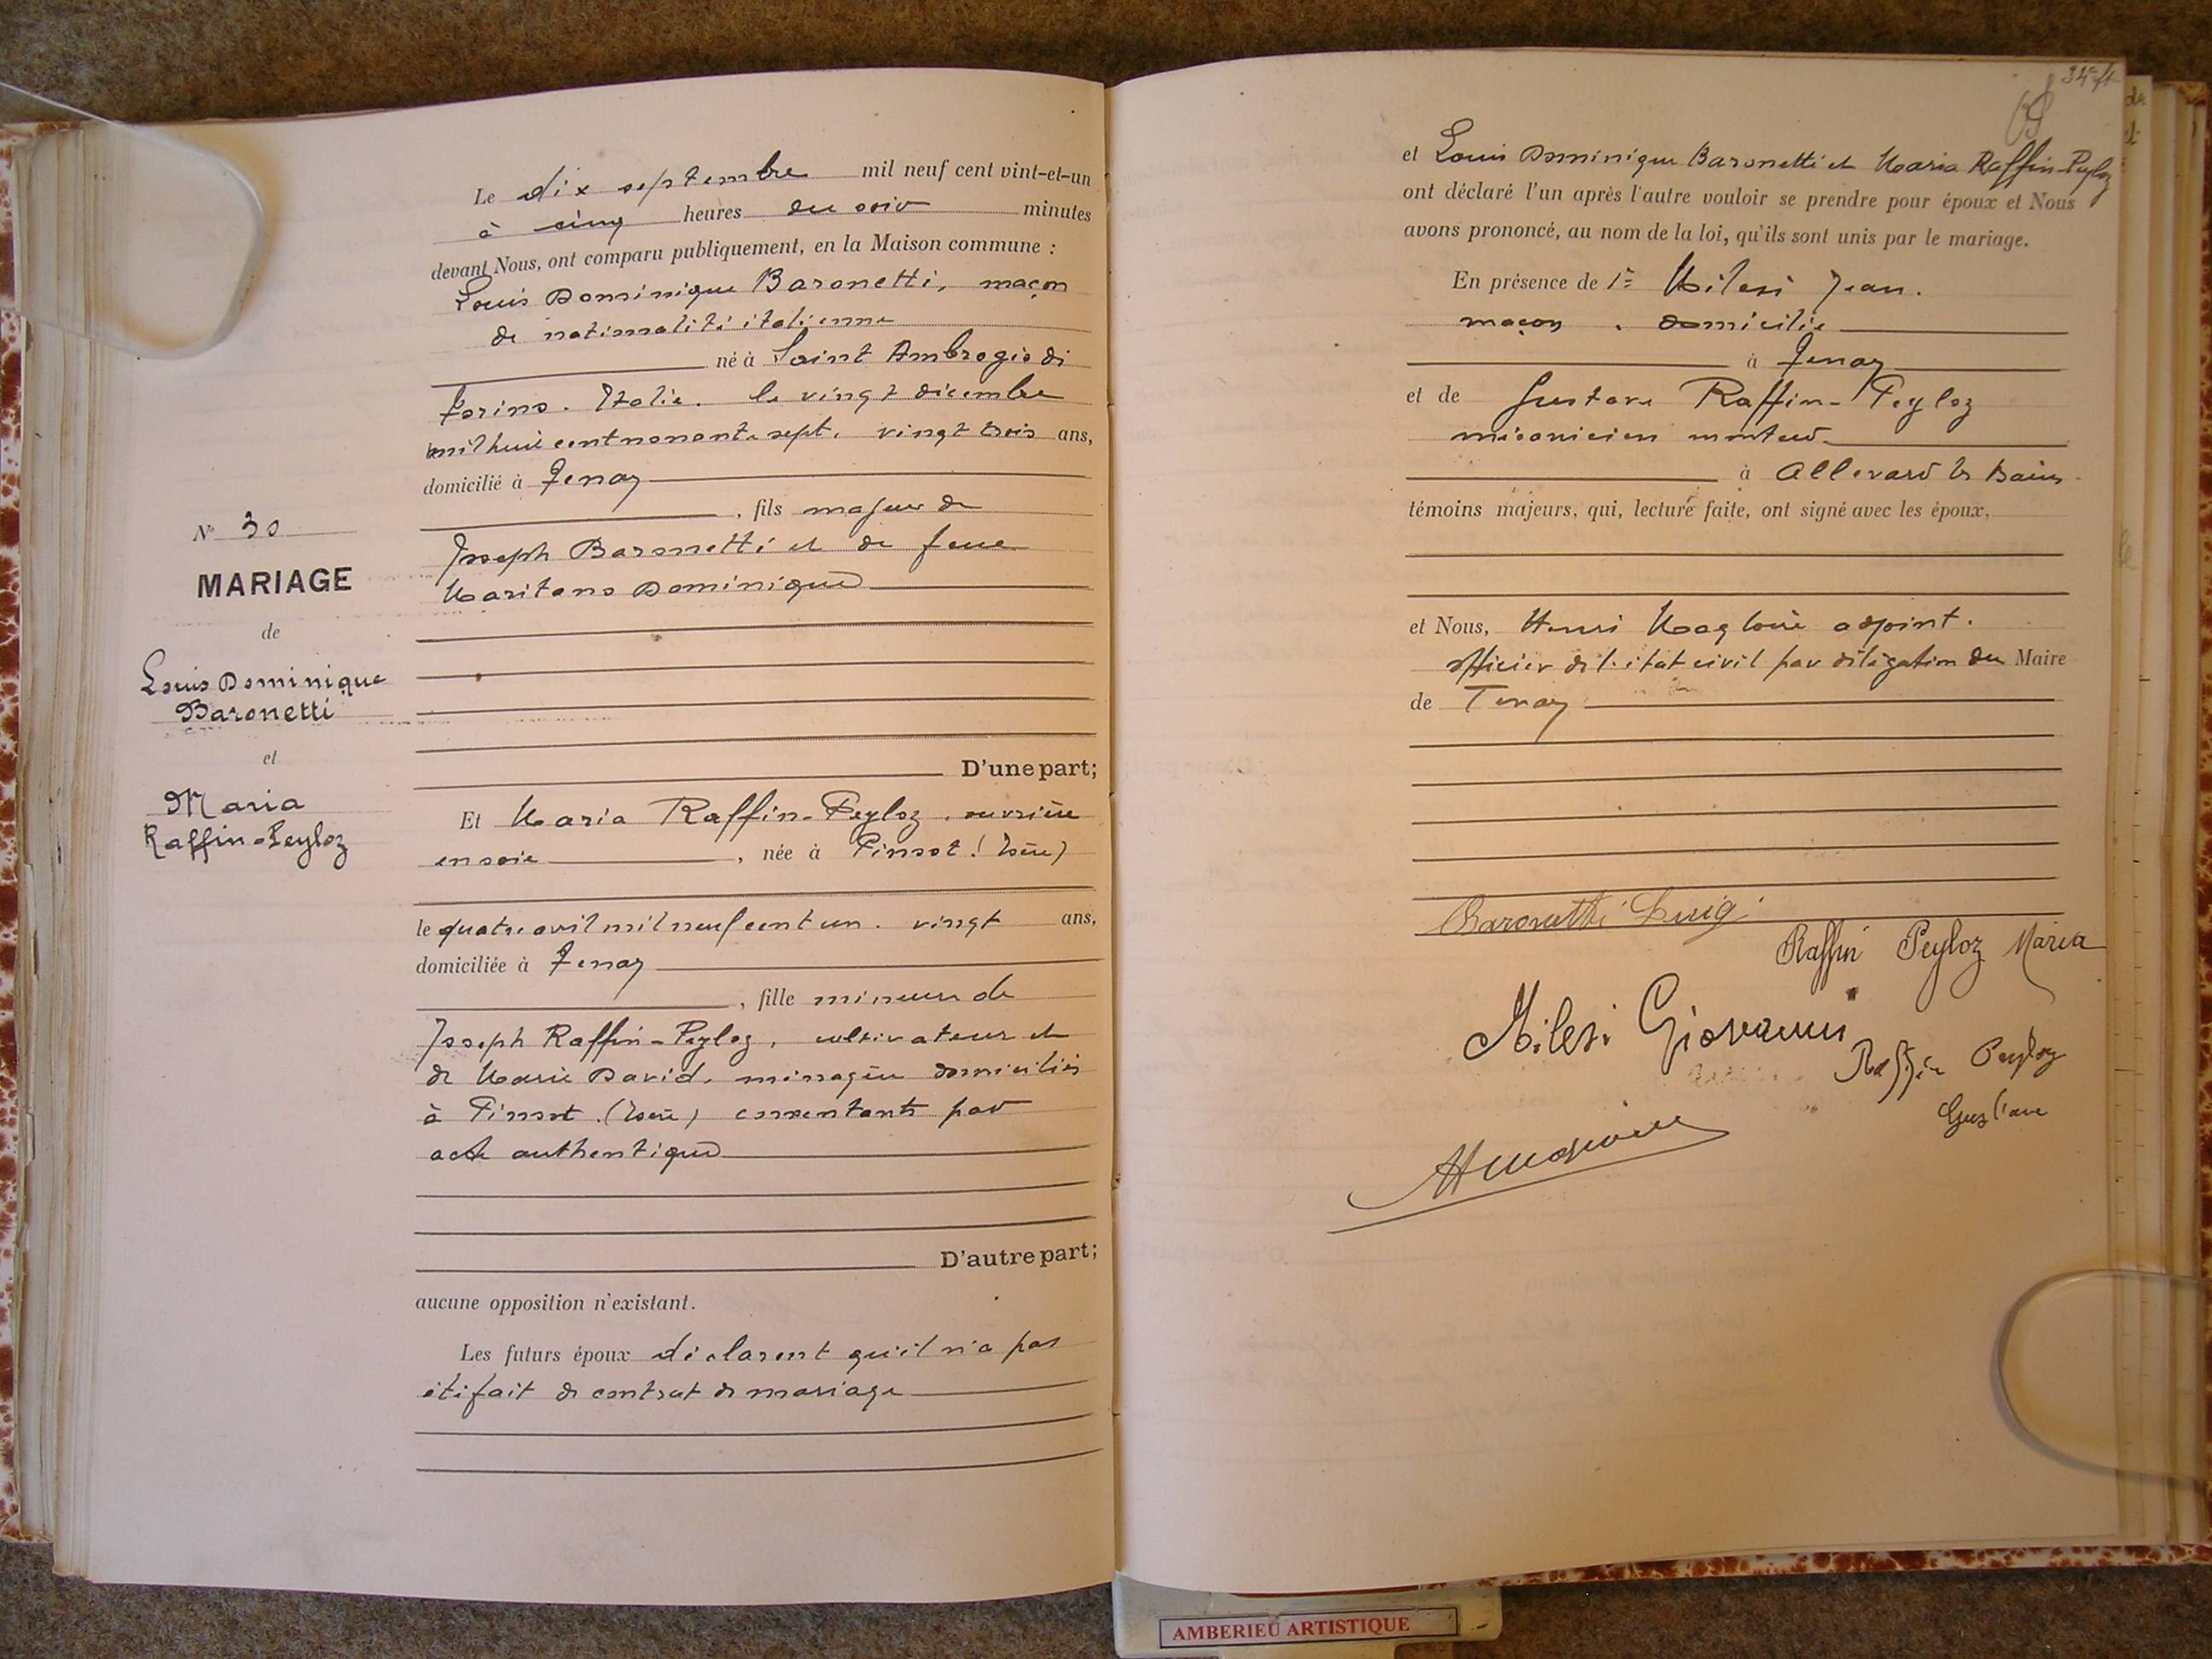 N° 30
MARIAGE
de
Louis Dominique
Baronetti
et
Maria
Raffin-Peyloz
Le dix septembre mil neuf cent vint-et-un
à cinq heures du soir minutes
devant Nous, ont comparu publiquement, en la Maison commune :
Louis Dominique Baronetti, maçon
de nationalité italienne
né à Saint Ambrogio di
Torino. Italie. le vingt décembre
mil huit cent nonante sept. vingt trois ans,
domicilié à Tenay
, fils majeur de
Joseph Baronetti et de feue
Maritano Dominique
D'une part;
Et Maria Raffin-Peyloz, ouvrière
en soie , née à Pinsot (Isère)
le quatre avril mil neuf cent un. vingt ans,
domiciliée à Tenay
, fille mineure de
Joseph Raffin-Peyloz, cultivateur et
de Marie David, ménagère domiciliés
à Pinsot (Isère) consentants par
acte authentique
D'autre part;
aucune opposition n'existant.
Les futurs époux déclarent qu'il n'a pas
été fait de contrat de mariage
et Louis Dominique Baronetti et Maria Raffin-Peyloz
ont déclaré l'un après l'autre vouloir se prendre pour époux et Nous
avons prononcé, au nom de la loi, qu'ils sont unis par le mariage.
En présence de 1° Milesi Jean.
maçon . domicilié
à Tenay
et de Gustave Raffin-Peyloz
mécanicien monteur
à Allevard les Bains
témoins majeurs, qui, lecture faite, ont signé avec les époux,
et Nous, Henri Magloire adjoint.
officier de l'état civil par délégation du Maire
de Tenay
Baronetti Luigi
Raffin Peyloz Maria
Milesi Giovanni
Raffin Peyloz
Gustave
AMBERIEU ARTISTIQUE